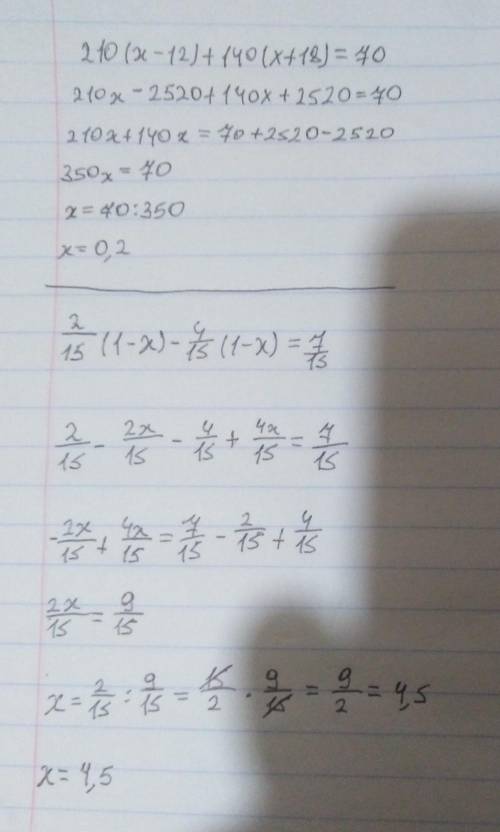 210(x-12)+140(x+18)=70
210x-2520+140x+2520=70
210x+140x=70+2520-2520
350x=70
x=70:350
x=0,2
2/15 (1-x) - 4/15 (1-x) = 7/15
2/15 - 2x/15 - 4/15 + 4x/15 = 7/15
-2x/15 + 4x/15 = 7/15 - 2/15 + 4/15
2x/15 = 9/15
x= 2/15 : 9/15 = 15/2 · 9/15 = 9/2 = 4,5
x=4,5